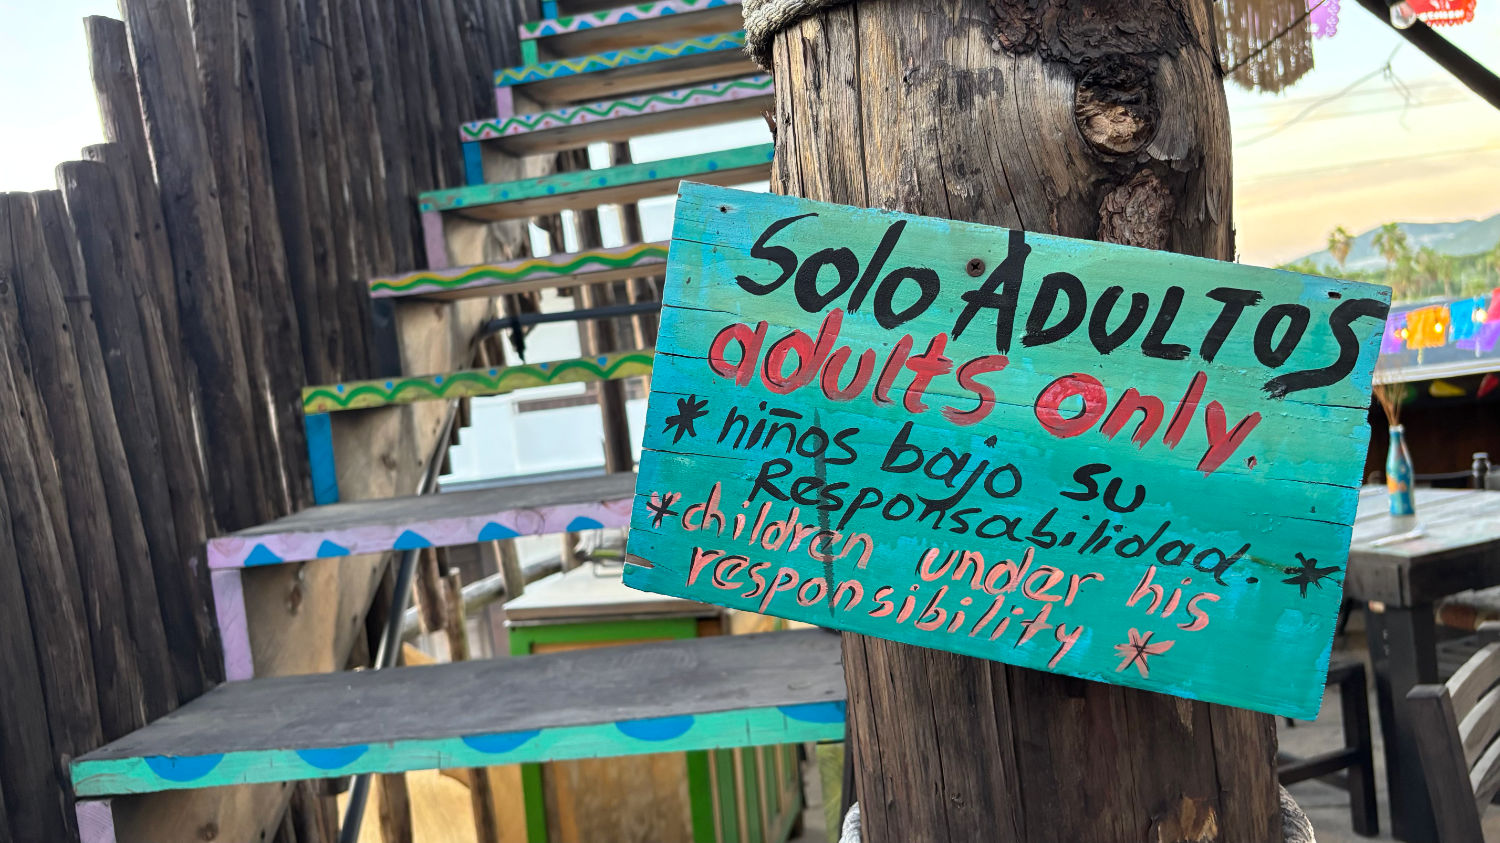 Solo ADULTOS
adults only.
* niños bajo su
Responsabilidad. *
* children under his
responsibility *